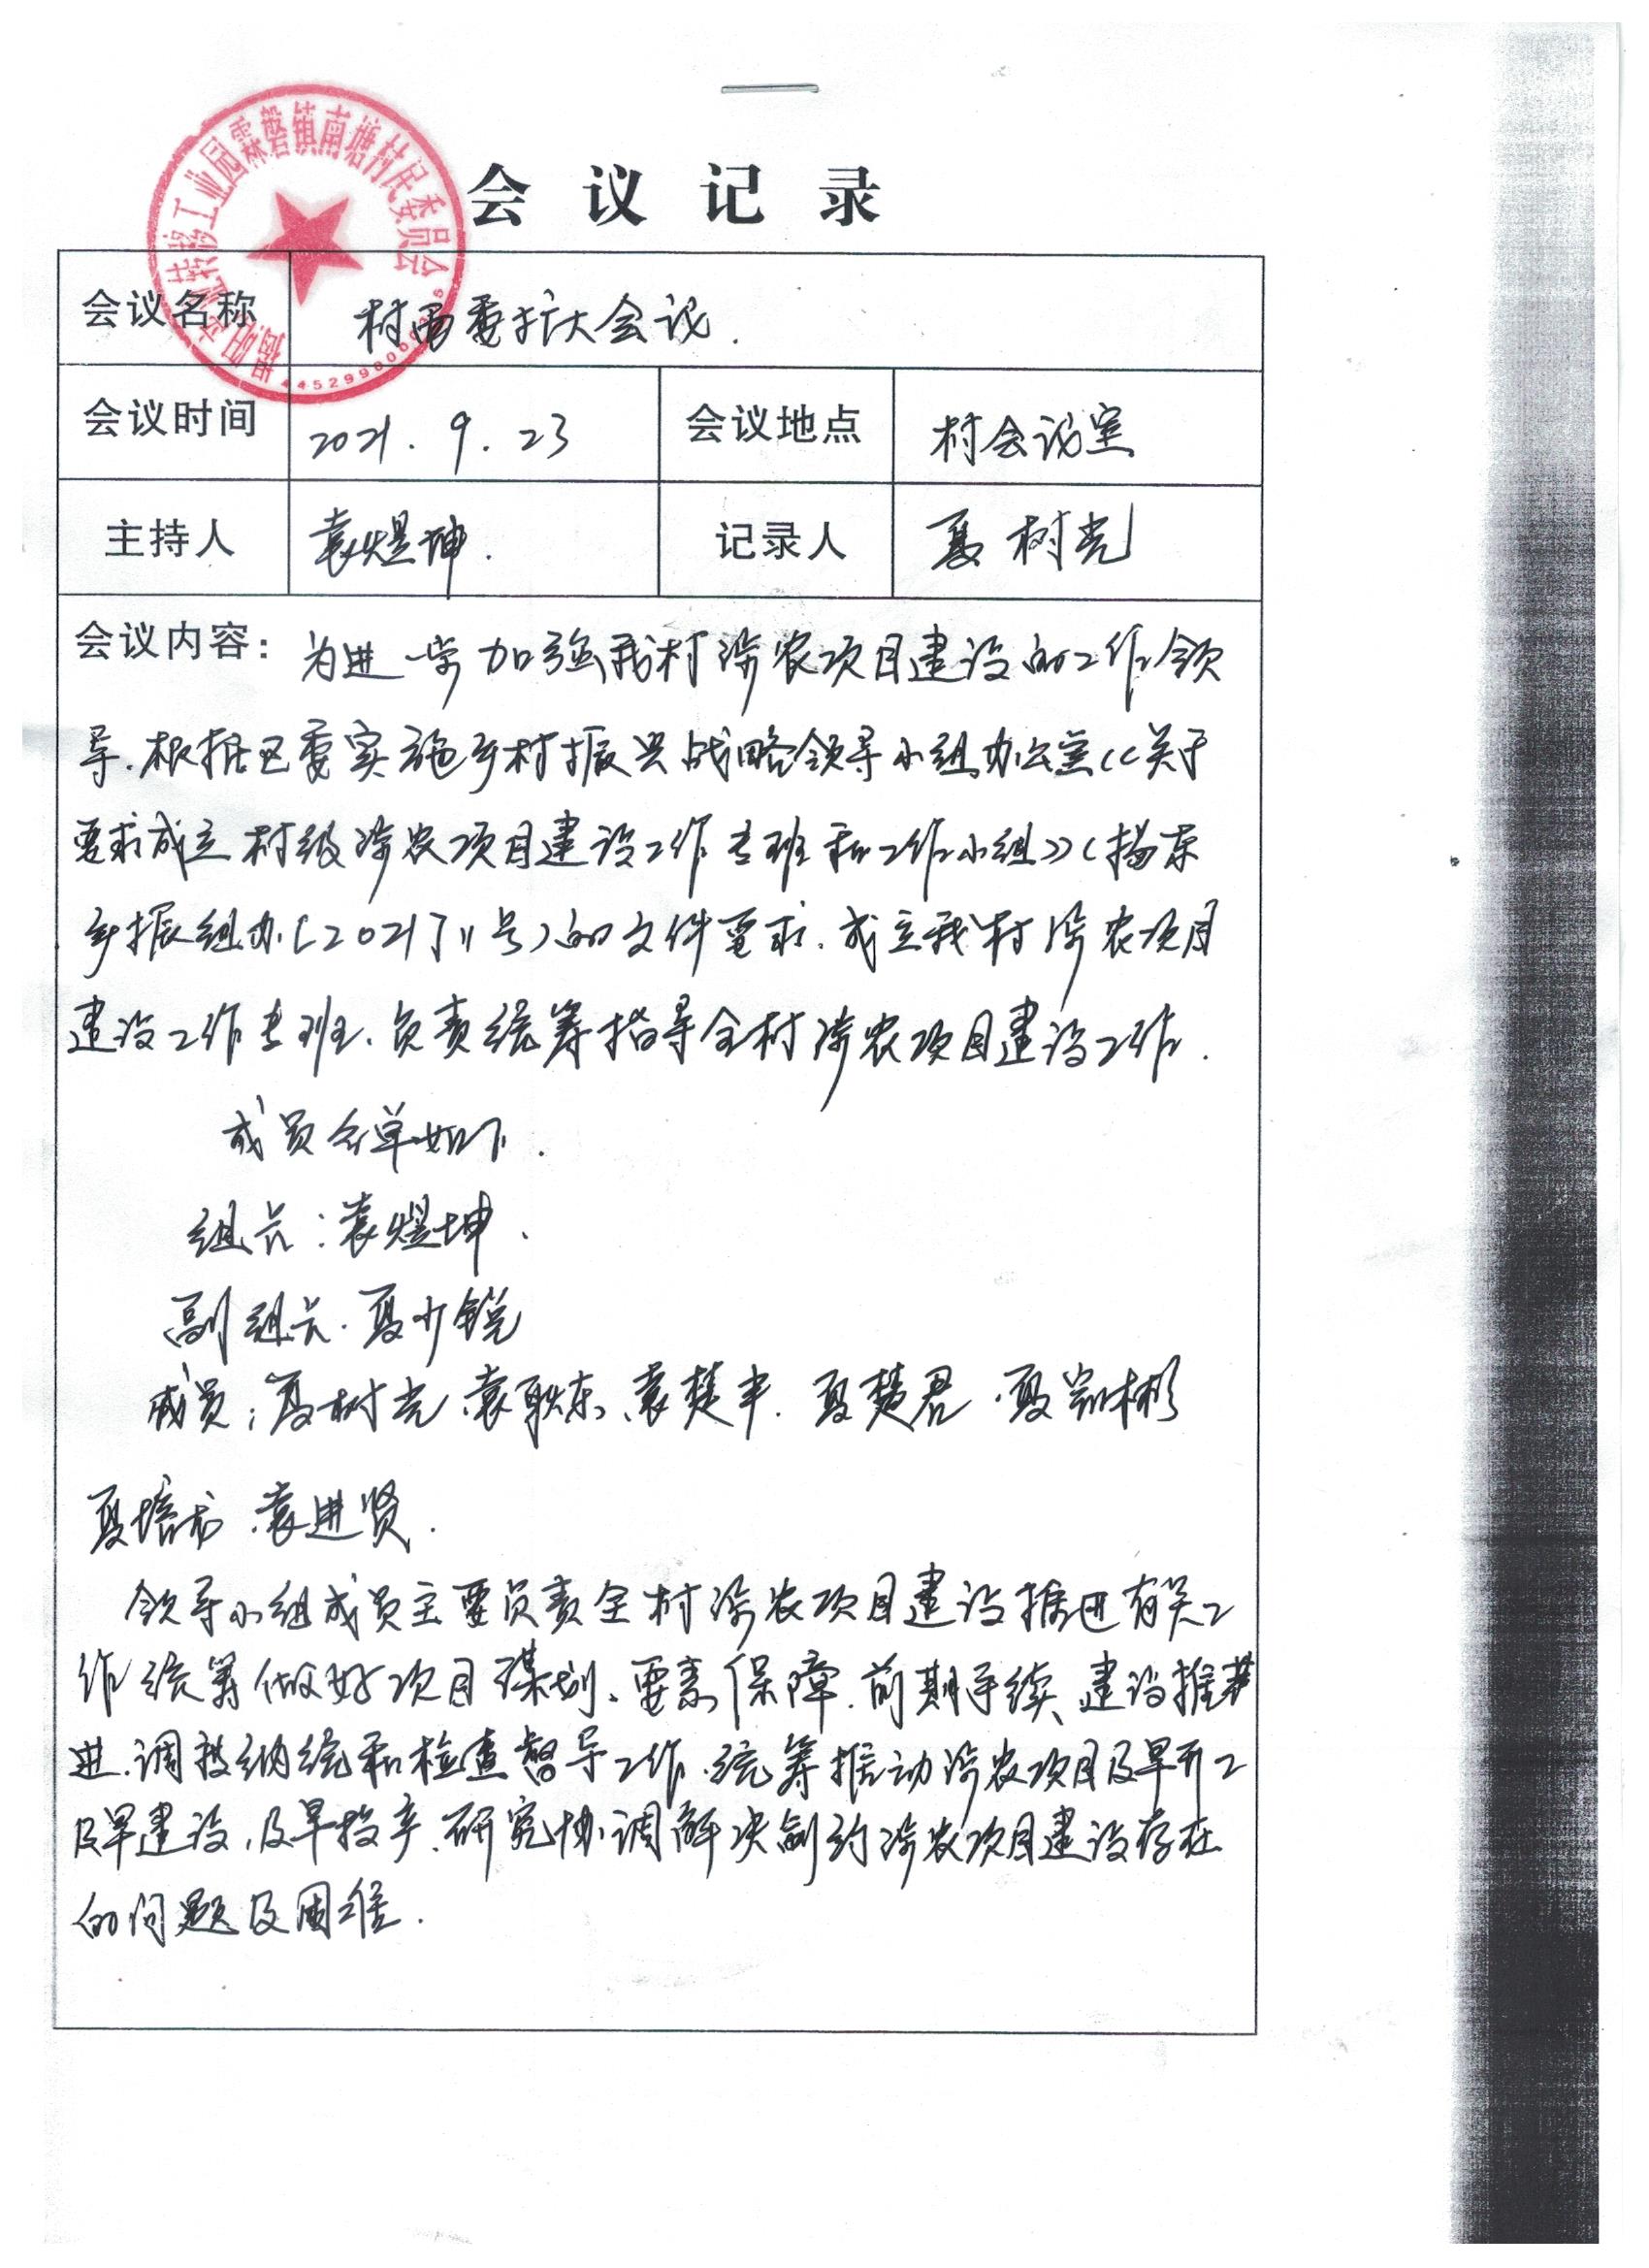 揭阳产业转移工业园霖磐镇南塘村民委员会
会议记录
会议名称 村两委扩大会议.
会议时间 2021.9.23 会议地点 村会议室
主持人 袁煜坤. 记录人 夏树光
会议内容: 为进一步加强我村涉农项目建设的工作领
导.根据区委实施乡村振兴战略领导小组办公室《关于
要求成立村级涉农项目建设工作专班和工作小组》(揭东
乡振组办[2021]11号)的文件要求.成立我村涉农项目
建设工作专班、负责统筹指导全村涉农项目建设工作.
成员名单如下.
组长:袁煜坤.
副组长.夏少锐
成员:夏树光、袁耿东、袁楚丰.夏楚君.夏岽彬
夏培书.袁进贤.
领导小组成员主要负责全村涉农项目建设推进有关工
作统筹做好项目谋划、要素保障.前期手续、建设推
进.调度纳统和检查督导工作.统筹推动涉农项目及早开工
及早建设,及早投产.研究协调解决制约涉农项目建设存在
的问题及困难.